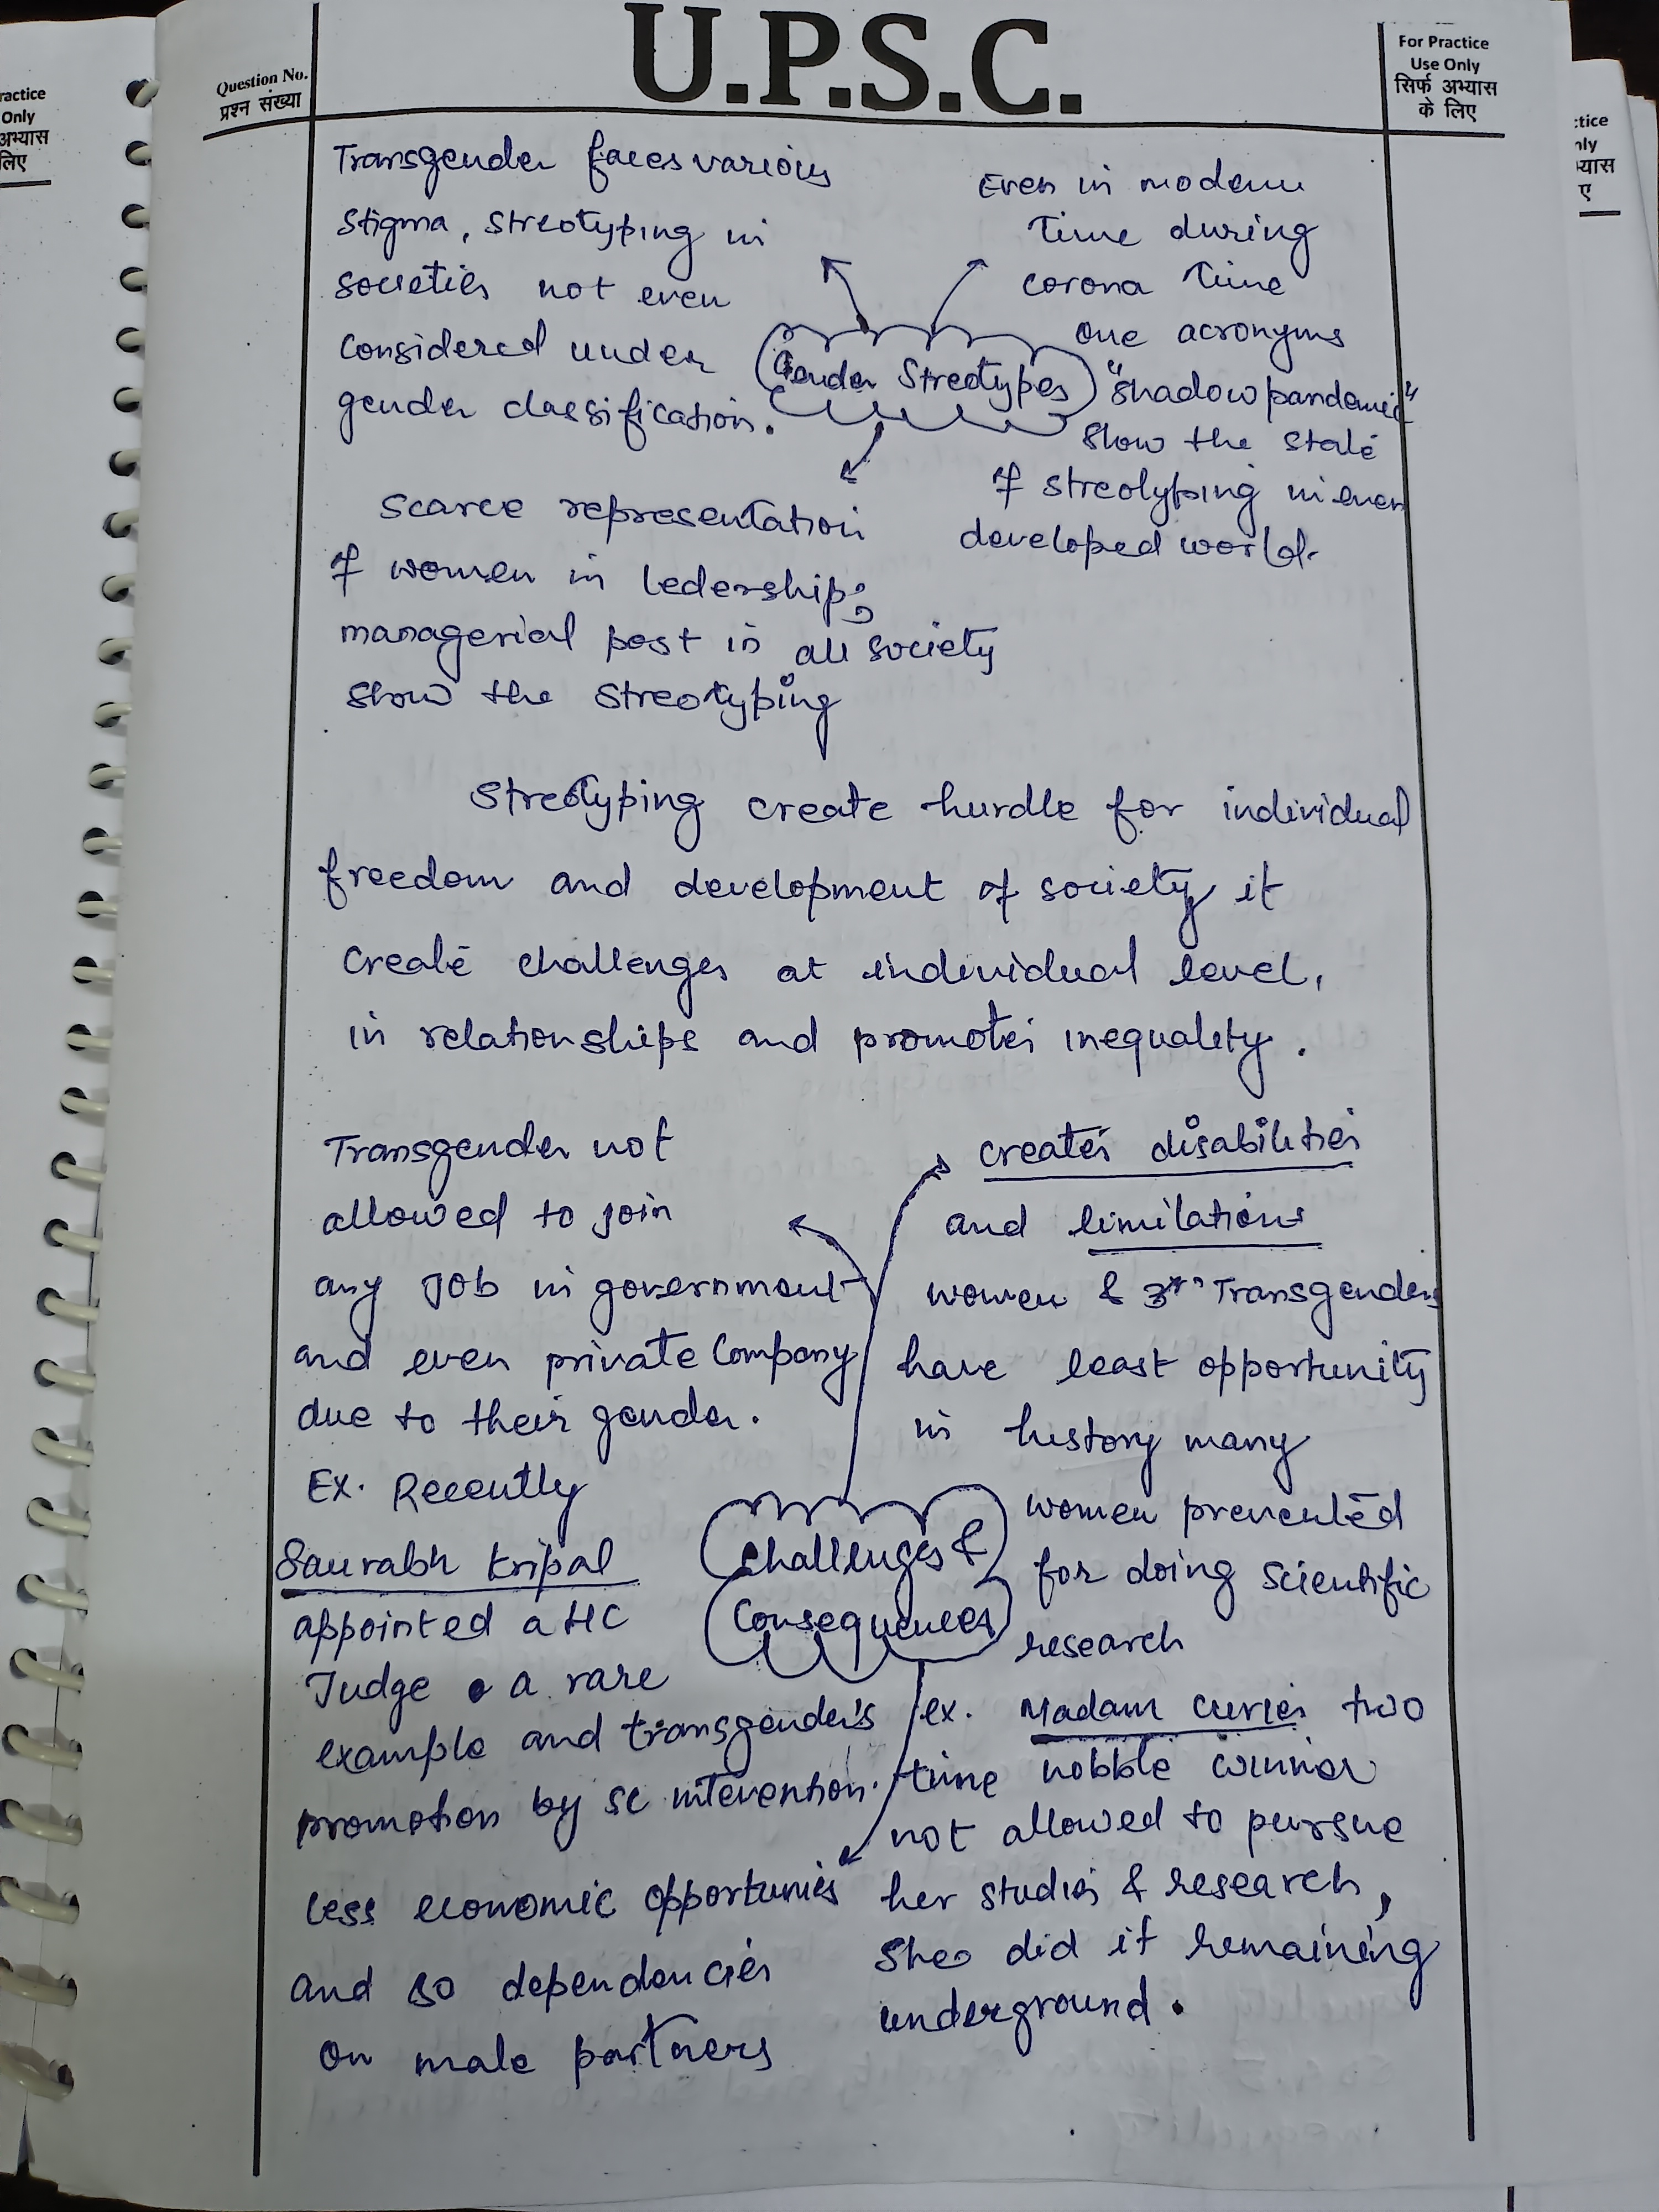 U.P.S.C.
Question No.
प्रश्न संख्या
For Practice
Use Only
सिर्फ अभ्यास
के लिए
ractice
Only
अभ्यास
लिए
ctice
nly
यास
ए
Transgender faces various
Stigma, Streotyping in
societies not even
Considered under
gender classification.
Even in modern
Time during
corona Time
one acronyms
"shadow pandemic"
Show the state
of streotyping in even
developed world.
Gender Streotypes
Scarce representation
of women in ledership,
managerial post in all society
Show the Streotyping
Streotyping create hurdle for individual
freedom and development of society it
Create challenges at individual level,
in relationships and promotes inequality.
Transgender not
allowed to join
any Job in government
and even private Company
due to their gender.
Ex. Recently
Saurabh Kripal
appointed a HC
Judge a rare
example and transgender's
promotion by SC intevention.
Creates disabilities
and limitations
women & Transgenders
have least opportunity
in history many
women prevented
for doing scientific
research
ex. Madam Curies two
time nobble winner
not allowed to pursue
her studies & research,
She did it remaining
underground.
Challenges &
Consequences
less economic opportunies
and so dependencies
on male partners